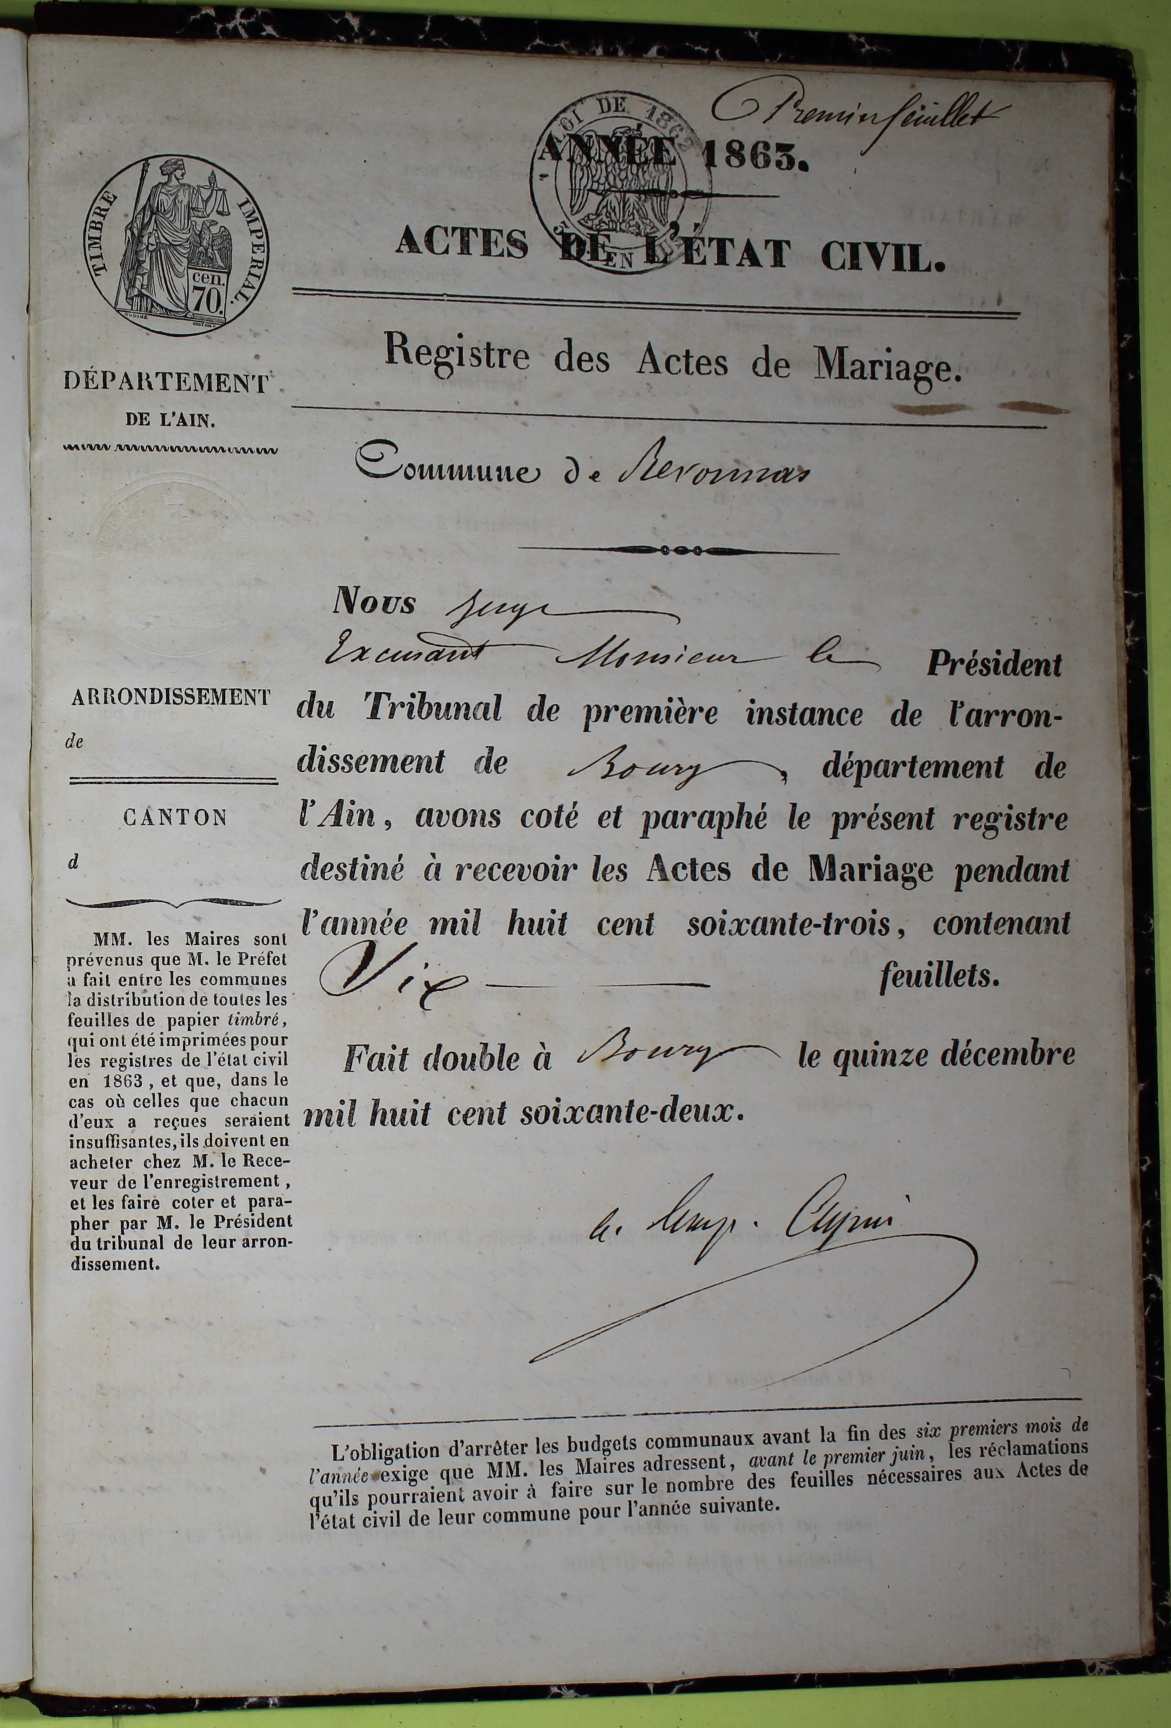 Premier feuillet
LOI DE 1862
ANNÉE 1863.
ACTES DE L'ÉTAT CIVIL.
EN
TIMBRE IMPÉRIAL.
cen.
70.
Registre des Actes de Mariage.
DÉPARTEMENT
DE L'AIN.
Commune de Revonnas
Nous Juge
Excusant Monsieur le Président
du Tribunal de première instance de l'arron-
dissement de Bourg, département de
l'Ain, avons coté et paraphé le présent registre
destiné à recevoir les Actes de Mariage pendant
l'année mil huit cent soixante-trois, contenant
Six feuillets.
Fait double à Bourg le quinze décembre
mil huit cent soixante-deux.
ARRONDISSEMENT
de
CANTON
d
MM. les Maires sont
prévenus que M. le Préfet
a fait entre les communes
la distribution de toutes les
feuilles de papier timbré,
qui ont été imprimées pour
les registres de l'état civil
en 1863, et que, dans le
cas où celles que chacun
d'eux a reçues seraient
insuffisantes, ils doivent en
acheter chez M. le Rece-
veur de l'enregistrement,
et les faire coter et para-
pher par M. le Président
du tribunal de leur arron-
dissement.
L'obligation d'arrêter les budgets communaux avant la fin des six premiers mois de
l'année exige que MM. les Maires adressent, avant le premier juin, les réclamations
qu'ils pourraient avoir à faire sur le nombre des feuilles nécessaires aux Actes de
l'état civil de leur commune pour l'année suivante.